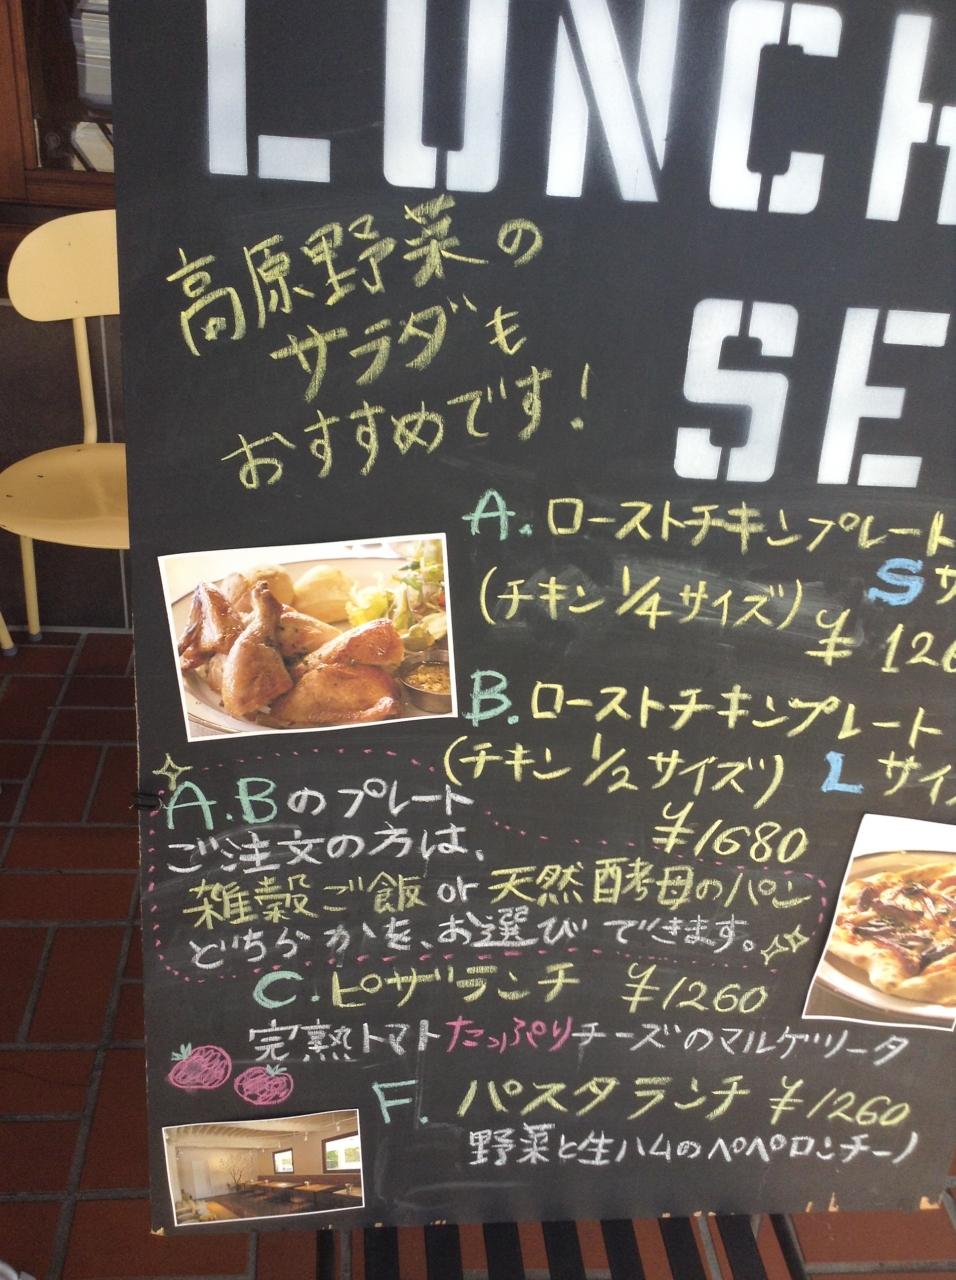 LUNCH
SE
高原野菜の
サラダも
おすすめです!
A. ローストチキンプレート
(チキン1/4サイズ) S サ
¥126
B. ローストチキンプレート
(チキン1/2サイズ) L サイ
¥1680
A.Bのプレート
ご注文の方は、
雑穀ご飯 or 天然酵母のパン
どちらかを、お選びできます。
C. ピザランチ ¥1260
完熟トマトたっぷりチーズのマルゲリータ
F. パスタランチ ¥1260
野菜と生ハムのペペロンチーノ